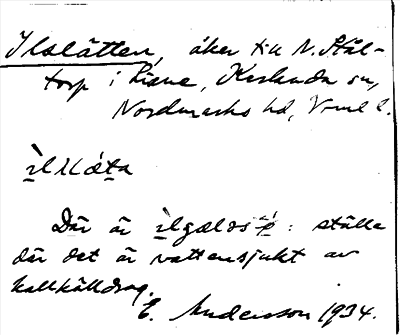 Ilslätten, åker till N. Stål-
torp i Risne, Karlanda sn,
Nordmarks hd, Vrml l.
Där är : ställe
där det är vattensjukt av
kallkälldrag.
E. Andersson 1934.